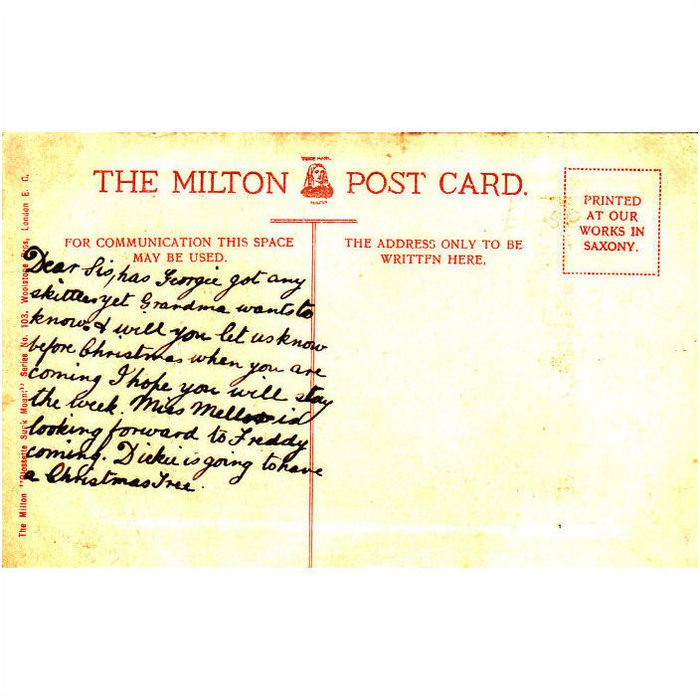 THE MILTON POST CARD.
TRADE MARK.
MILTON
FOR COMMUNICATION THIS SPACE
MAY BE USED.
THE ADDRESS ONLY TO BE
WRITTEN HERE.
PRINTED
AT OUR
WORKS IN
SAXONY.
Dear Sis, has Georgie got any
skittles yet Grandma wants to
know. & will you let us know
before Christmas when you are
coming I hope you will stay
the week. Miss Mellor is
looking forward to Freddy
coming. Dickie is going to have
a Christmas Tree.
The Milton "Glossette Sunk Mount" Series No. 103. Woolstone Bros., London E. C.